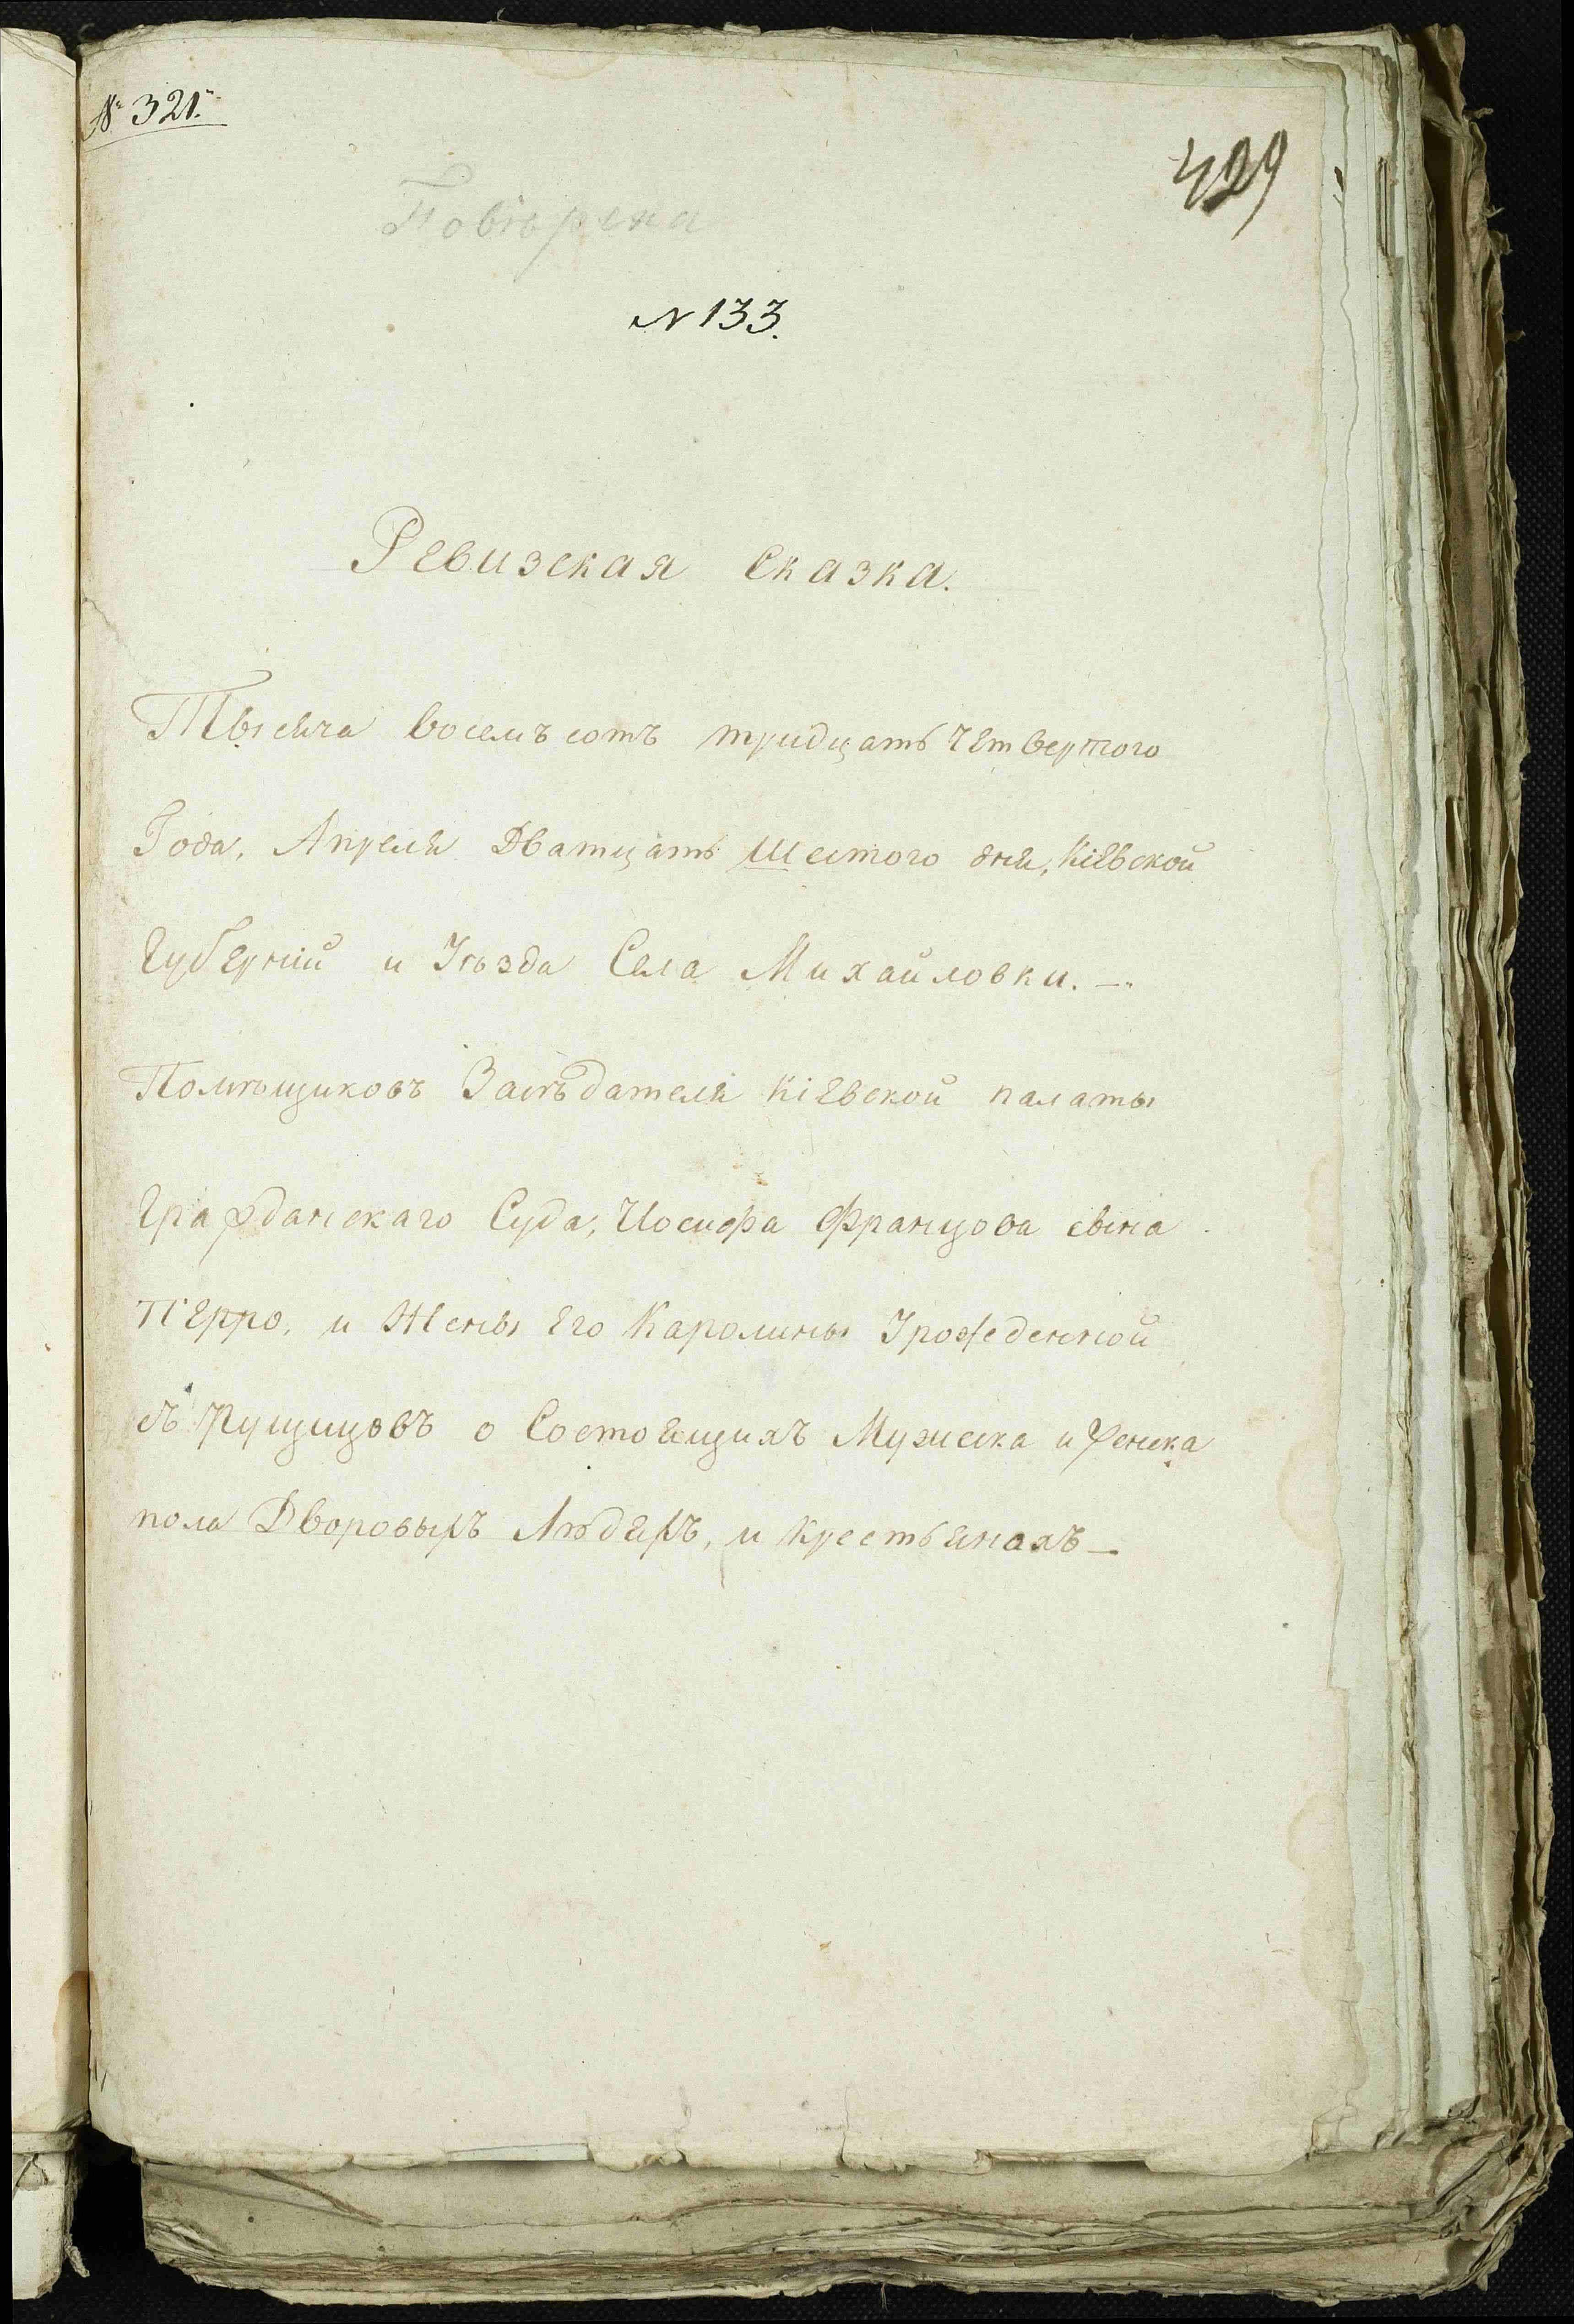 № 321.
429
Повѣрена
N 133.
Ревизская Сказка.
Тысяча восемъ сотъ тридцать Четвертого
Года, Апреля Дватцать Шестого дня, Кіевской
Губерніи и Уѣзда Села Михайловки. —
Помѣщиковъ Засѣдателя Кіевской палаты
Гражданскаго Суда, Иосифа Францова сына
Перро, и Жены Его Каролины Урожденной
съ Рущицовъ о Состоящихъ Мужеска и Женска
пола Дворовыхъ Людехъ, и Крестьянахъ —